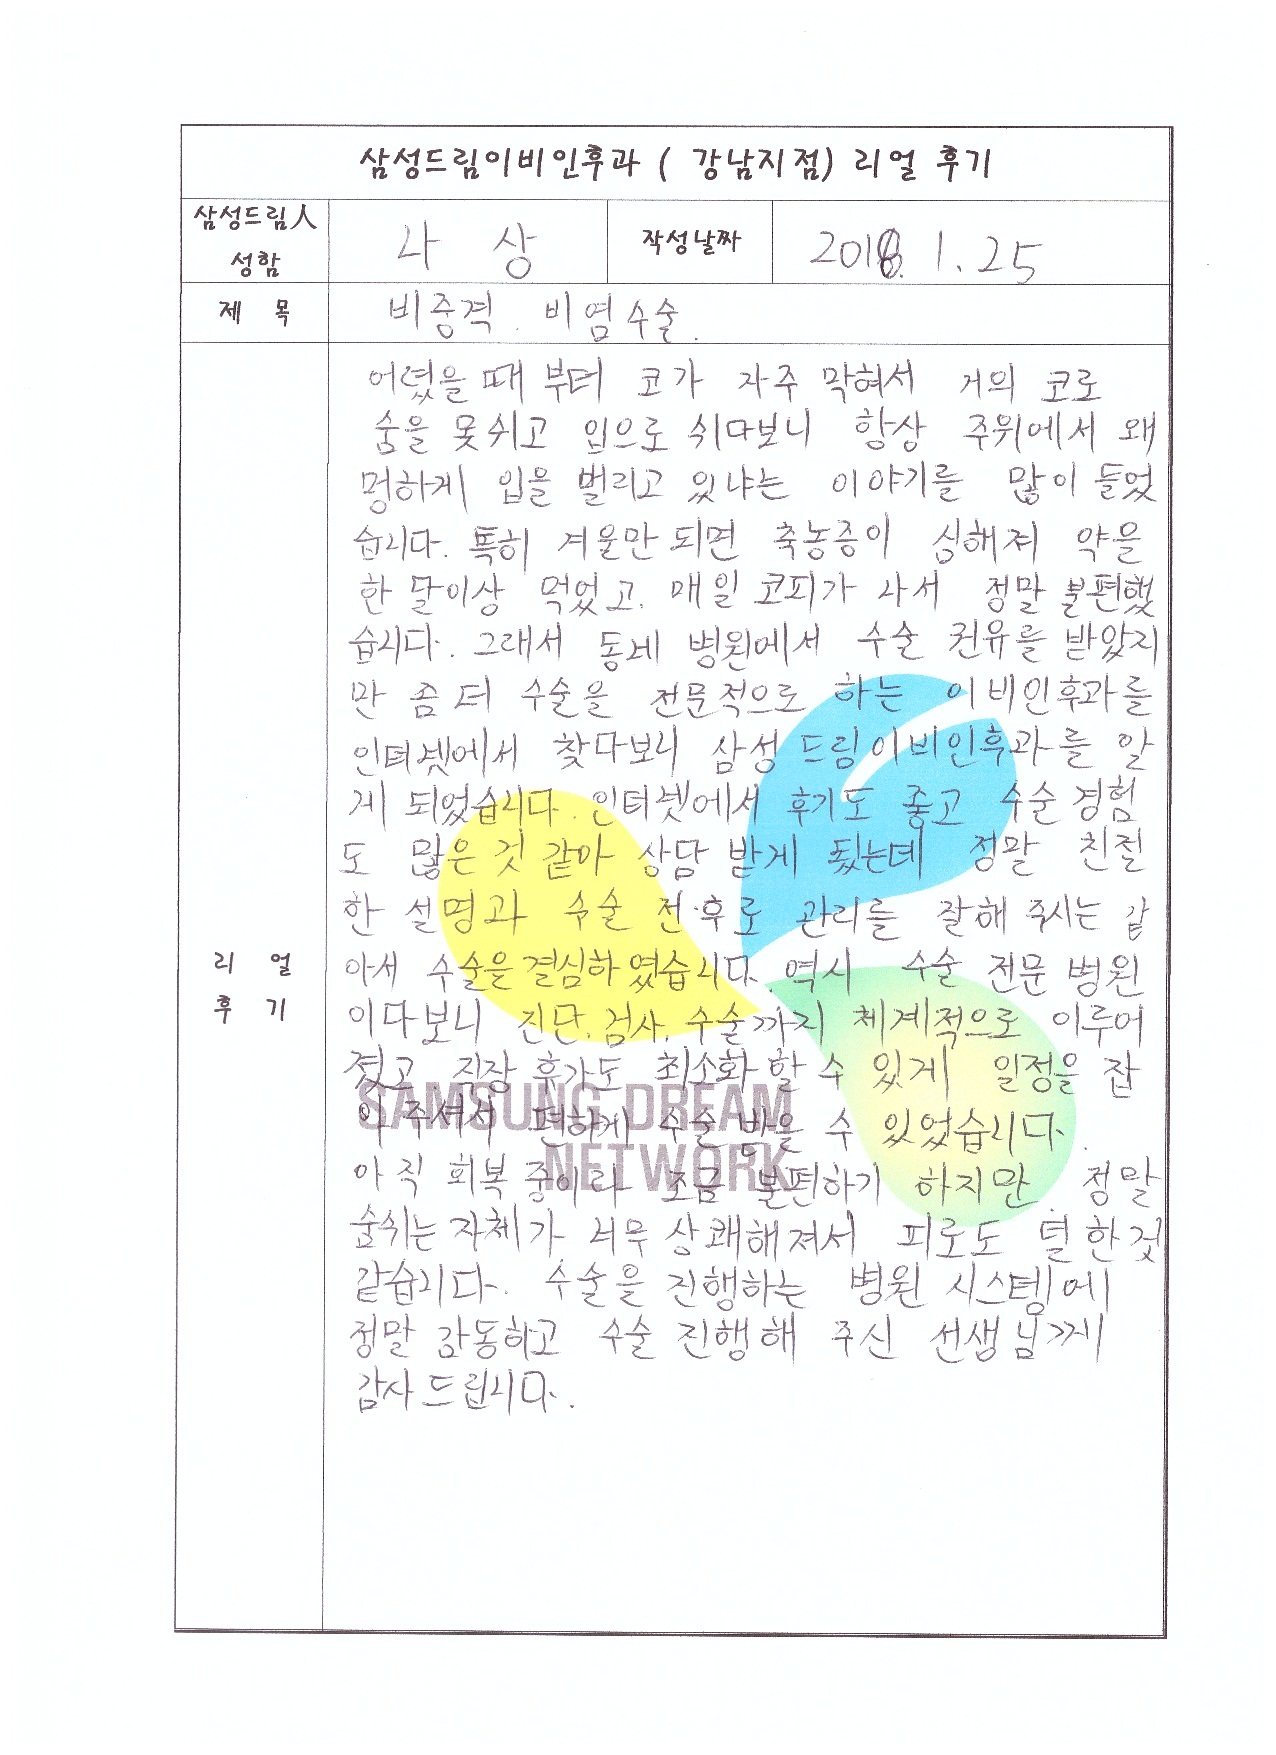 삼성드림이비인후과 ( 강남지점) 리얼 후기
삼성드림人 성함
나 상
작성날짜
2018. 1. 25
제 목
비중격. 비염수술.
리 얼
후 기
어렸을 때 부터 코가 자주 막혀서 거의 코로
숨을 못쉬고 입으로 쉬다보니 항상 주위에서 왜
멍하게 입을 벌리고 있냐는 이야기를 많이 들었
습니다. 특히 겨울만 되면 축농증이 심해져 약을
한 달이상 먹었고, 매일 코피가 나서 정말 불편했
습니다. 그래서 동네 병원에서 수술 권유를 받았지
만 좀 더 수술을 전문적으로 하는 이비인후과를
인터넷에서 찾다보니 삼성드림이비인후과를 알
게 되었습니다. 인터넷에서 후기도 좋고 수술 경험
도 많은 것 같아 상담 받게 됬는데 정말 친절
한 설명과 수술 전·후로 관리를 잘해 주시는 같
아서 수술을 결심하였습니다. 역시 수술 전문 병원
이다보니 진단, 검사, 수술까지 체계적으로 이루어
졌고 직장 휴가도 최소화 할 수 있게 일정을 잡
아 주셔서 편하게 수술 받을 수 있었습니다.
아직 회복 중이라 조금 불편하기 하지만 정말
숨쉬는 자체가 너무 상쾌해져서 피로도 덜 한것
같습니다. 수술을 진행하는 병원 시스템에
정말 감동하고 수술 진행해 주신 선생님께
감사드립니다.
SAMSUNG DREAM
NETWORK